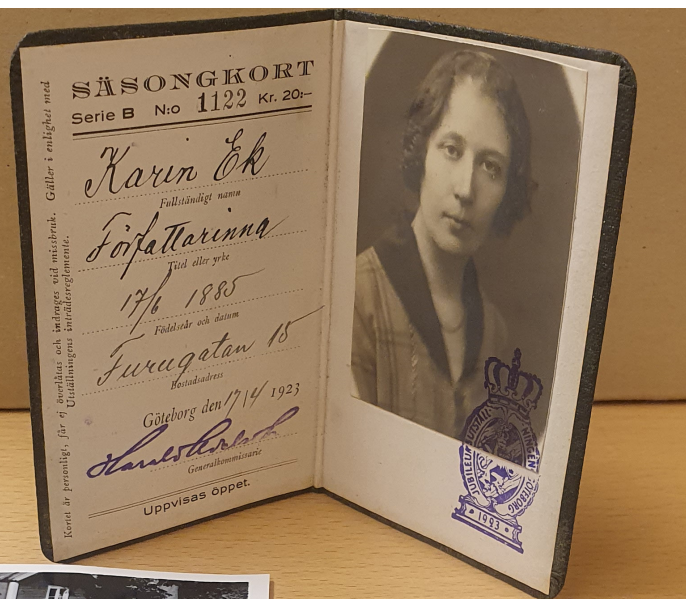 SÄSONGKORT
Serie B N:o 1122 Kr. 20:–
Karin Ek
Fullständigt namn
Författarinna
Titel eller yrke
17/6 1885
Födelseår och datum
Furugatan 15
Bostadsadress
Göteborg den 17/4 1923
Generalkommissarie
Uppvisas öppet.
Kortet är personligt, får ej överlåtas och indrages vid missbruk. Gäller i enlighet med
Utställningens inträdesreglemente.
JUBILEUMSUTSTÄLLNINGEN GÖTEBORG
1923